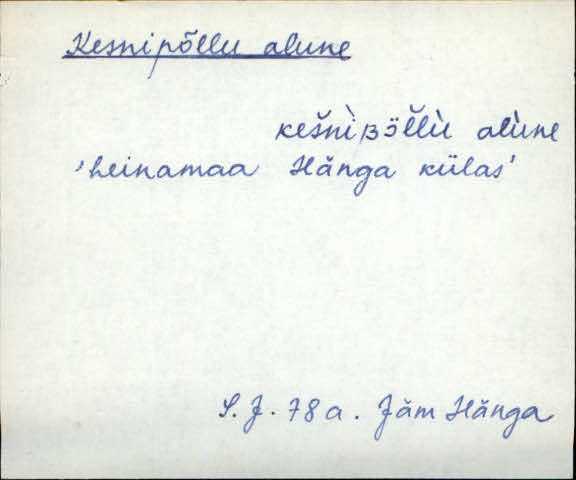 Kesnipõllu alune
kešnìʙöl̆lù alùne
'heinamaa Hänga külas'
S. J. 78 a. Jäm Hänga